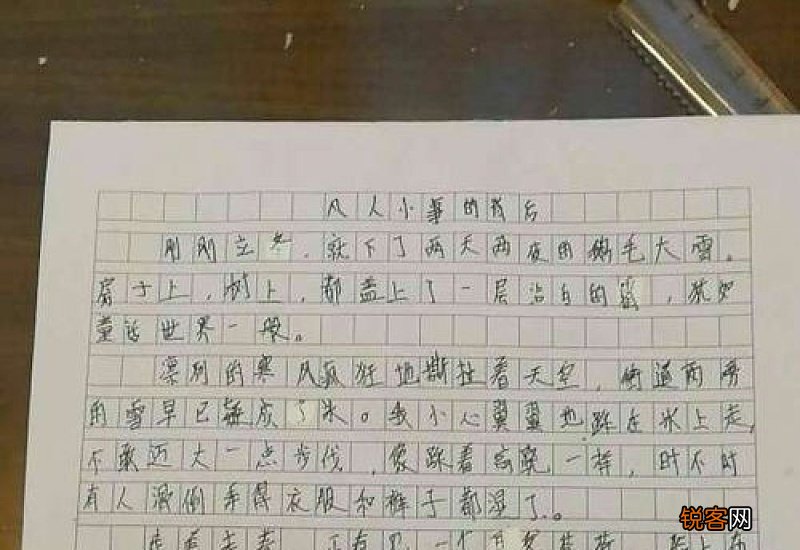 凡人小事的背后
刚刚立冬,就下了两天两夜的鹅毛大雪。
房子上,树上,都盖上了一层洁白的雪,犹如
童话世界一般。
凛冽的寒风疯狂地撕扯着天空,街道两旁
的雪早已凝成了冰。我小心翼翼地踩在冰上走,
不敢迈大一点步伐,像踩着高跷一样,时不时
有人滑倒弄得衣服和裤子都湿了。
走着走着 正
锐客网